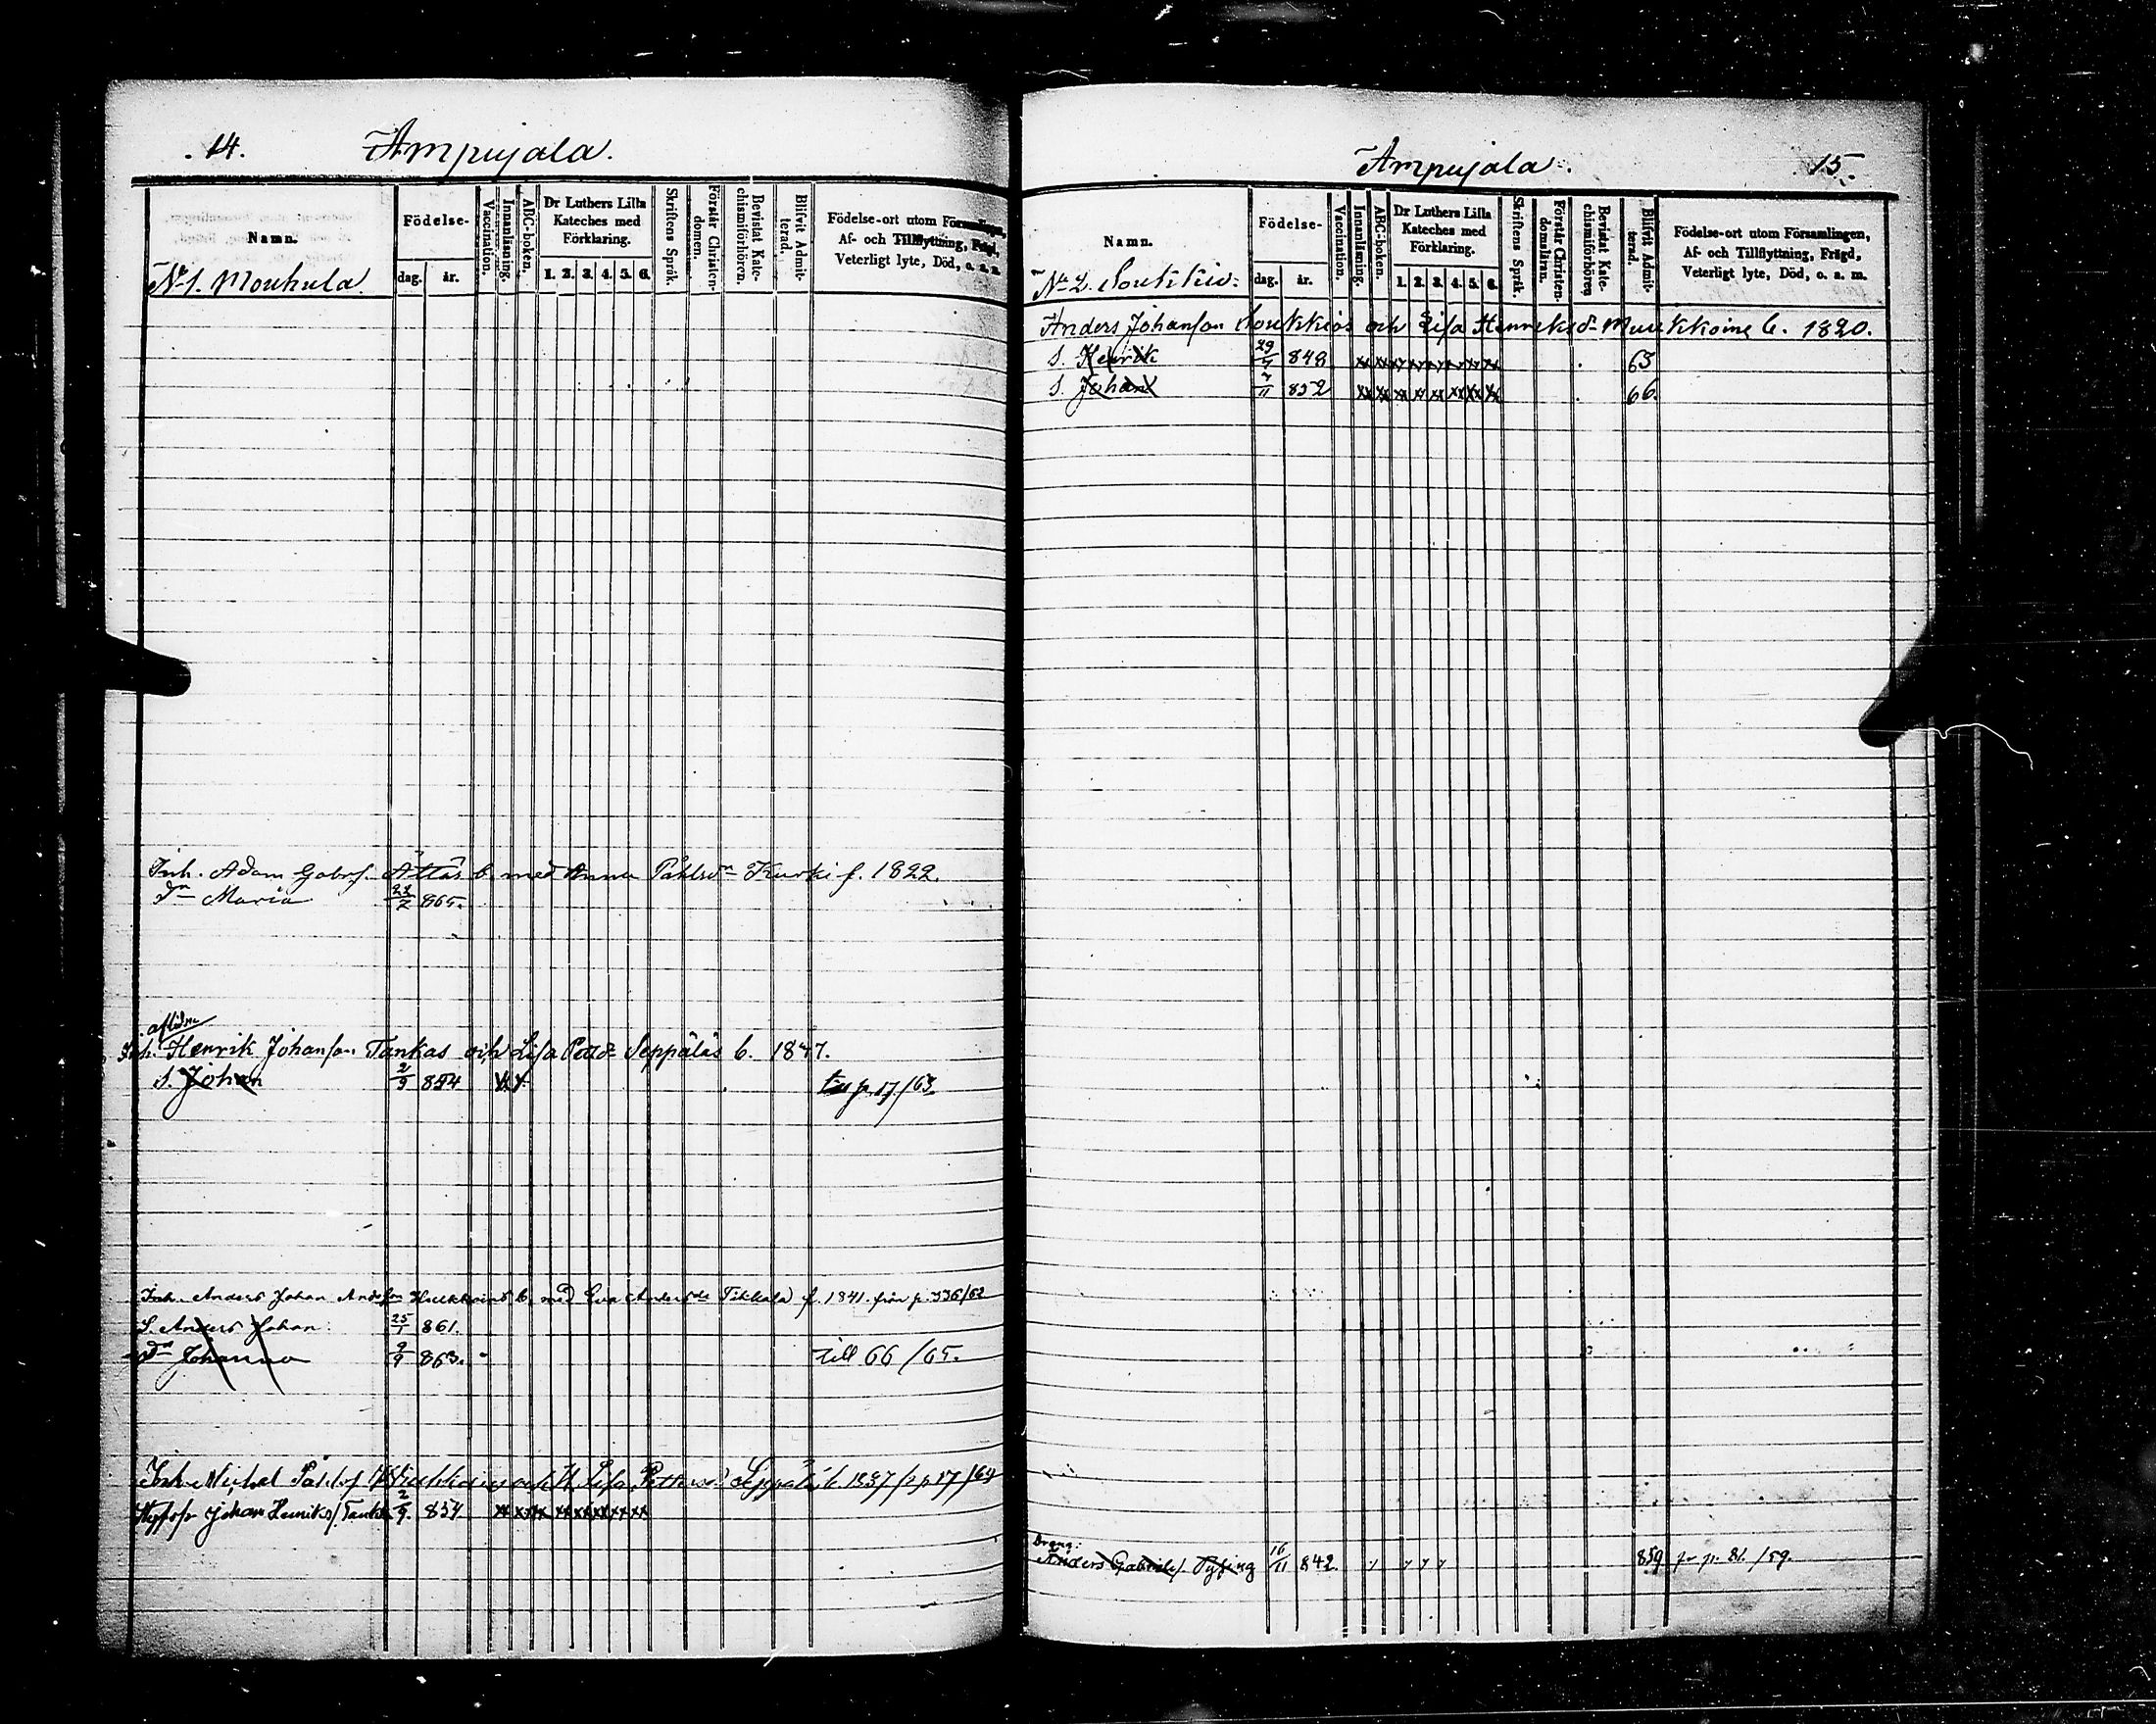 14. Ampujala.
Namn.
No 1. Mouhula.
Födelse-
dag. år.
Vaccination.
Innanläsning.
ABC-boken.
Dr Luthers Lilla Kateches med Förklaring.
1. 2. 3. 4. 5. 6.
Skriftens Språk.
Förstår Christen-domen.
Bevistat Kate-chismiförhören.
Blifvit Admit-terad.
Födelse-ort utom Församlingen,
Af- och Tillflyttning, Frägd,
Veterligt lyte, Död, o. s. m.
Inh. Adam Gabrs. b. med Anna Påhlsdr Kurki f. 1822.
Dr Maria 865.
aflidne
Inh. Henrik Johanson Tankas och Lisa Pettdr Seppäläs b. 1847.
S. Johan 2/9 854 p. 17/63.
Inh. Anders Johan Anderson b. med Eva Andersdr Tikkala f. 1841. från p. 336/62
S. Anders Johan 25/1 861.
Dr Johanna 9/9 863. till 66/65.
Inh. Michel och Lisa Seppälä b. 1837 p 17/64
Johan Henriks. 2/9. 854.
Ampujala. 15.
Namn.
No 2. Soukkio.
Födelse-
dag. år.
Vaccination.
Innanläsning.
ABC-boken.
Dr Luthers Lilla Kateches med Förklaring.
1. 2. 3. 4. 5. 6.
Skriftens Språk.
Förstår Christen-domsläran.
Bevistat Kate-chismiförhören
Blifvit Admit-terad.
Födelse-ort utom Församlingen,
Af- och Tillflyttning, Frägd,
Veterligt lyte, Död, o. s. m.
Anders Johanson Soukkios och Lisa Henriksdr b. 1820.
S. Henrik 848 63
S. Johan 7/11 852 66.
Dräng:
Anders Gabriels. 16/11 842. 859. fr p. 81./59.